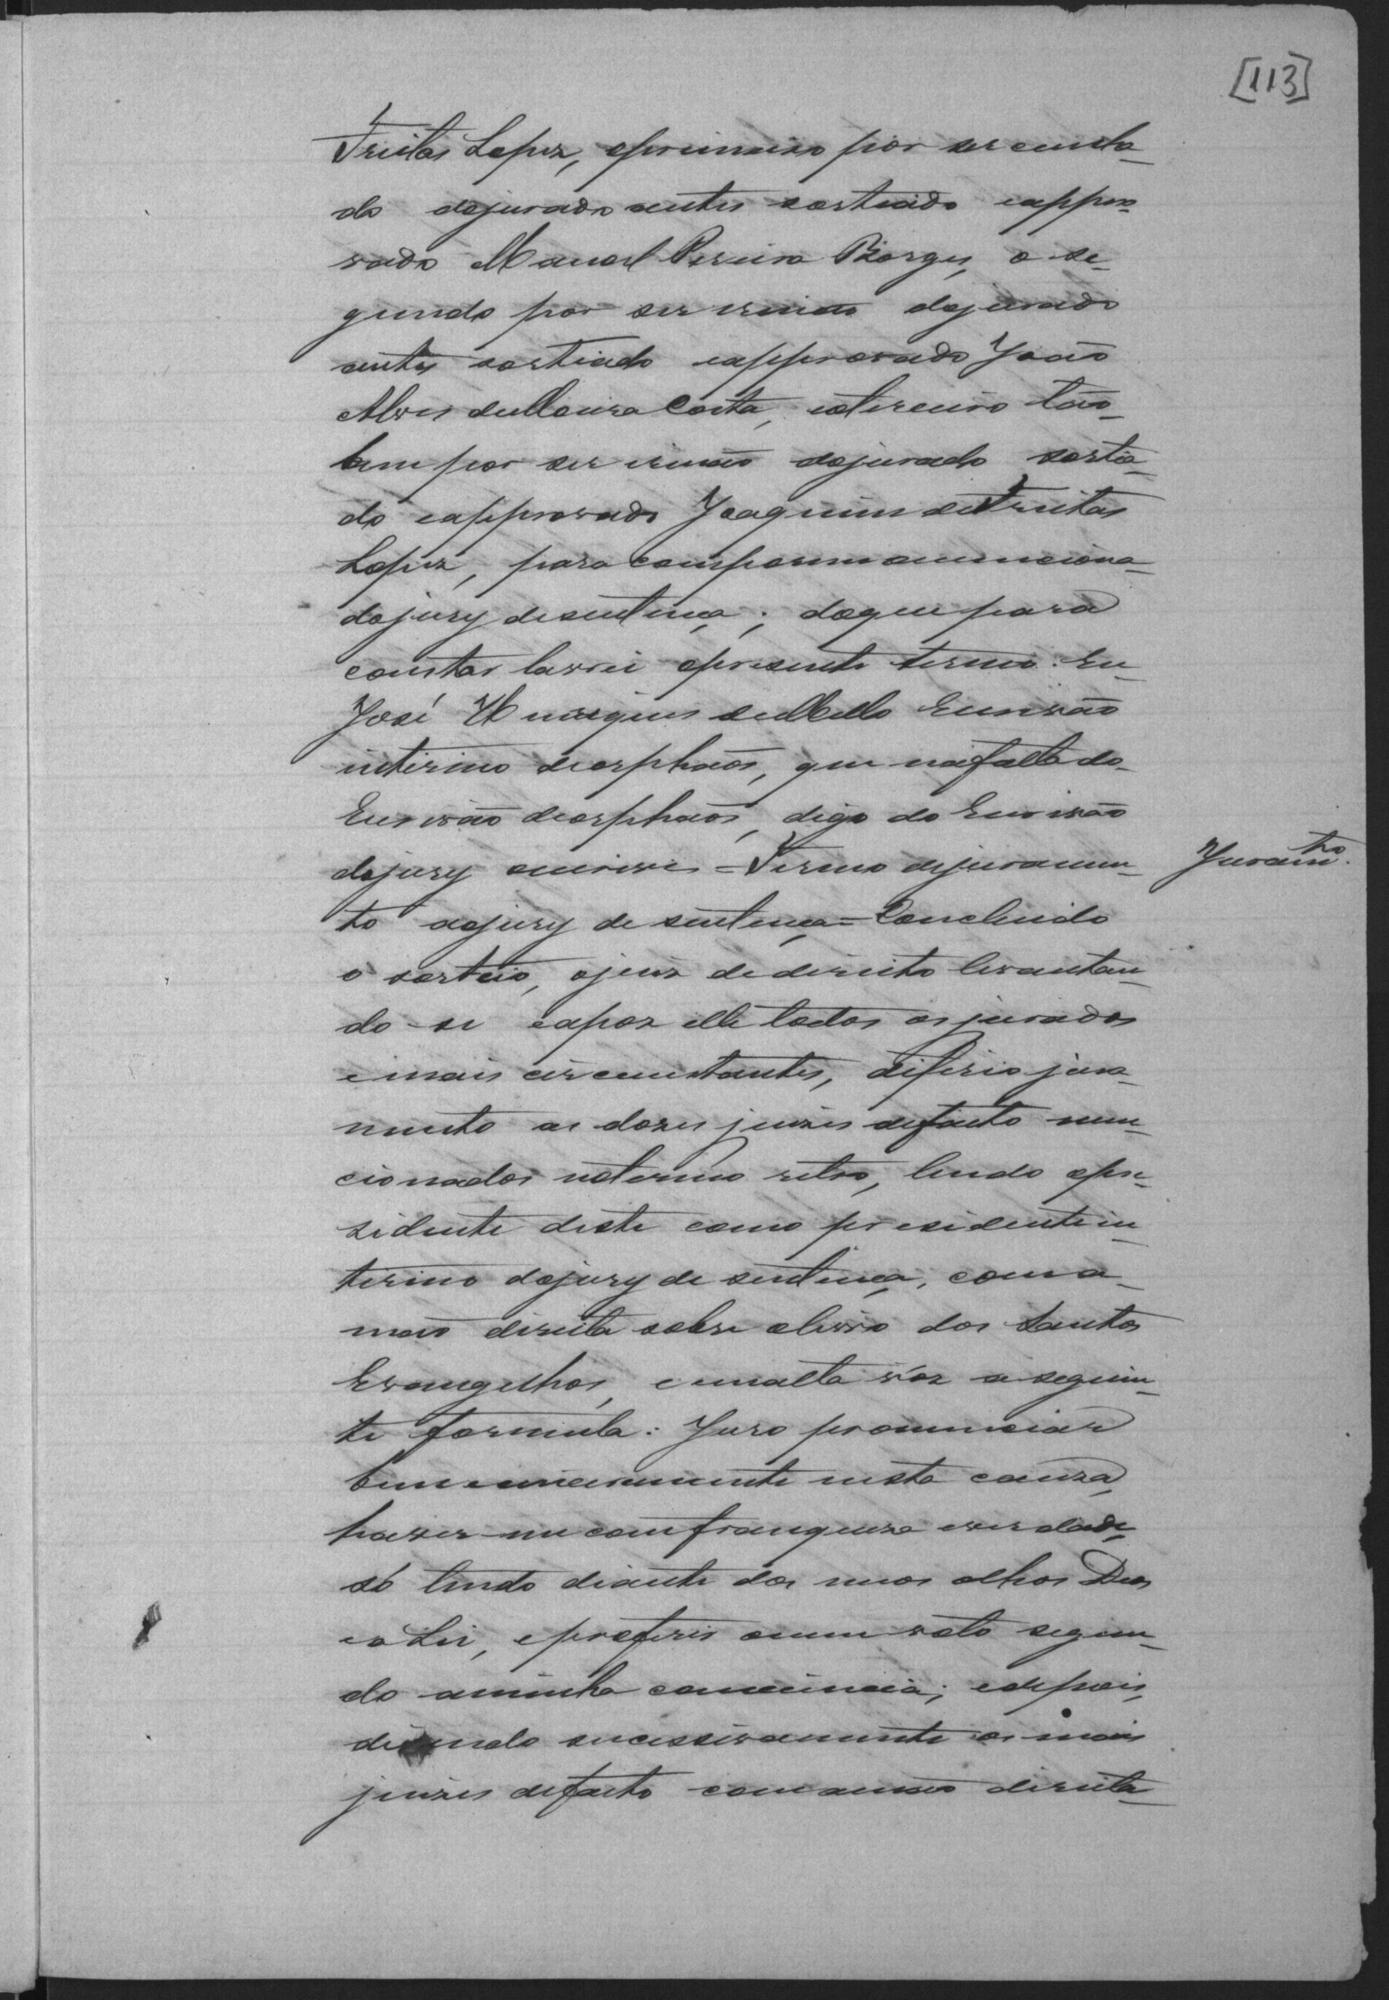 [113]
Freitas Lopez, oprimeiro por ser cunha-
do dojurado antes sorteado eappro-
vado Manoel Pereira Borges, o se-
gundo por ser irmão dojurado
antes sortiado eapprovado João
Alves deMoura Costa, eoterceiro tão-
bem por ser irmão dojurado sortia-
do eapprovado Joaquim deFreitas
Lopez, para comporem amenciona-
dojury desentença; doque para
constar lavrei opresente termo. Eu-
José Henriques deMello Escrivão
interino deorphaõs, que nafalta do-
Escrivão deorphaõs, digo do Escrivão
dojury escrevi = Termo dejuramen-
Juramto.
to aojury de sentença = Concluido
o sorteio, ojuiz de direito levantan-
do-se eapoz elle todos osjurados
emais circunstantes, diferio jura-
mento os doze juizes defacto men-
cionados notermo retro, lendo opre-
zidente deste como presidente in-
terino dojury de sentença, com a-
mão direita sobre olivro dos Santos
Evangelhos, e emalta vóz a seguin-
te formula: Juro pronunciar
bem esinceramente nesta cauza,
haver-me comfranqueza everdade
só tendo diante dos meus olhos Deos
ea Lei, eproferir omeu voto segun-
do aminha consciencia; edepois,
dizendo sucessivamente os mais
juizes defacto comamão direita-